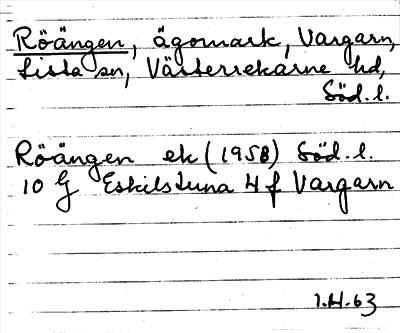 Röängen, ägomark, Vargarn,
Lista sn, Västerrekarne hd,
Söd. l.
Röängen ek (1958) Söd. l.
10 G Eskilstuna 4 f Vargarn